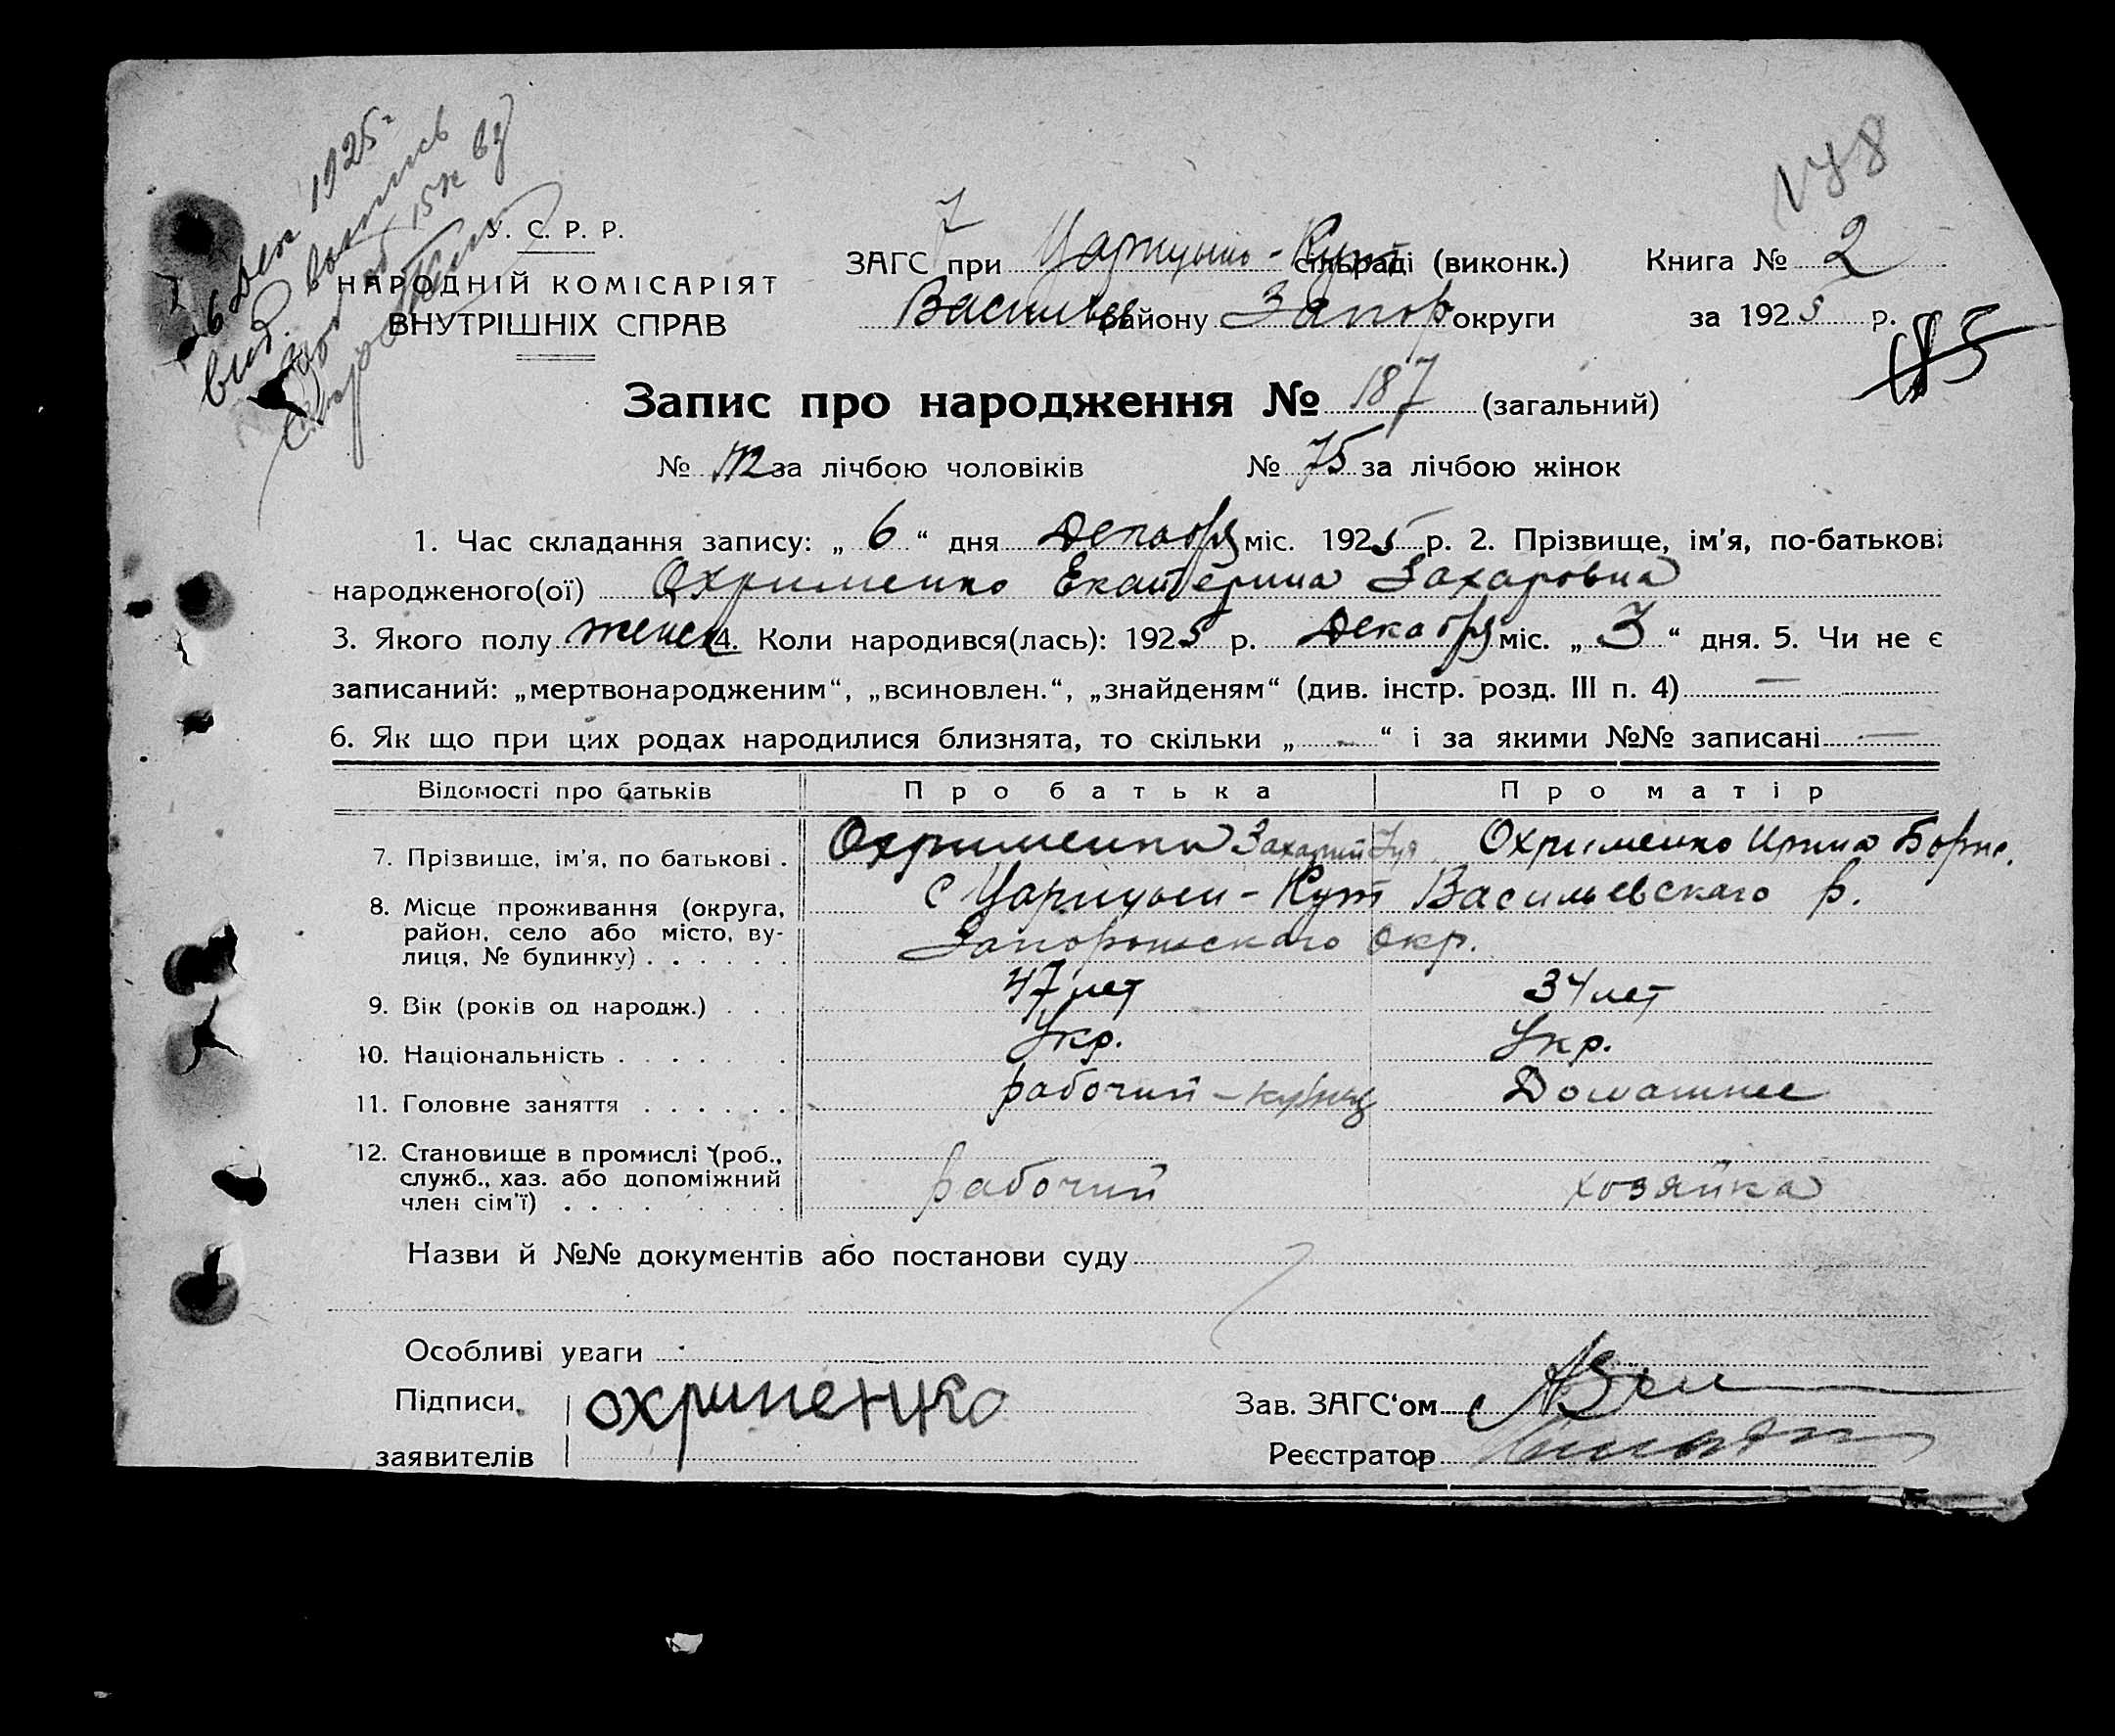 6 Дек 1925 г
вид. выпись
У. С. Р. Р.
НАРОДНІЙ КОМІСАРІЯТ
ВНУТРІШНІХ СПРАВ
ЗАГС при Царицыно-Кут сільраді (виконк.)
Васильев району Запор округи
178
Книга № 2
за 1925 р.
185
Запис про народження № 187 (загальний)
№ 112 за лічбою чоловіків № 75 за лічбою жінок
1. Час складання запису: „ 6 “ дня Декабря міс. 1925 р. 2. Прізвище, ім'я, по-батькові
народженого(ої) Охрименко Екатерина Захаровна
3. Якого полу женск 4. Коли народився(лась): 1925 р. Декабря міс. „ 3 “ дня. 5. Чи не є
записаний: „мертвонародженим“, „всиновлен.“, „знайденям“ (див. інстр. розд. III п. 4) —
6. Як що при цих родах народилися близнята, то скільки „ — “ і за якими №№ записані —
Відомості про батьків Про батька Про матір
7. Прізвище, ім'я, по батькові . Охрименко Захарий Охрименко Ирина Борис.
8. Місце проживання (округа, район, село або місто, вулиця, № будинку) . . . . . . с Царицын-Кут Васильевскаго р.
Запорожскаго окр.
9. Вік (років од народж.) . . . 47 лет 34 лет
10. Національність . . . . . . Укр. Укр.
11. Головне заняття . . . . . . рабочий - кузнец Домашнее
12. Становище в промислі (роб., служб., хаз. або допоміжний член сім'ї) . . . . . . . . рабочий хозяйка
Назви й №№ документів або постанови суду
Особливі уваги
Підписи заявителів охрименко
Зав. ЗАГС‘ом
Реєстратор